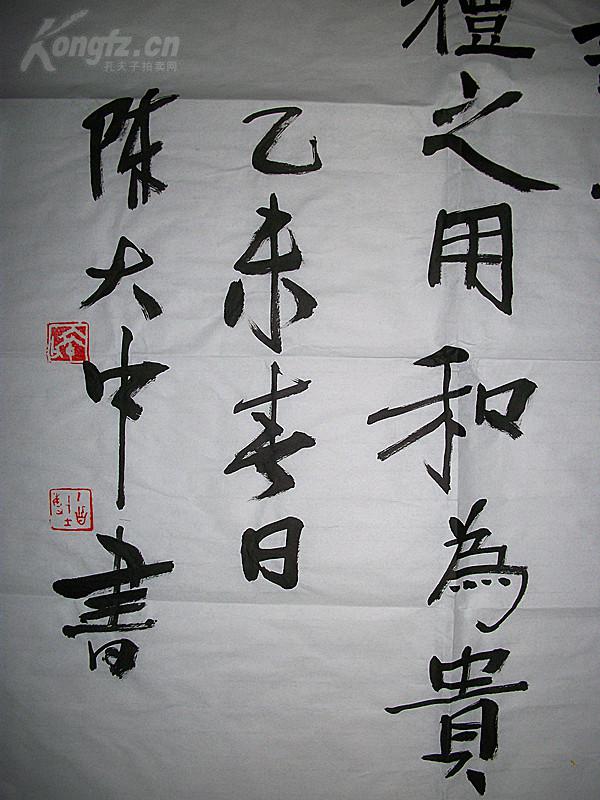 禮之用和為貴
乙未春日
陳大中書
Kongfz.cn
孔夫子拍卖网